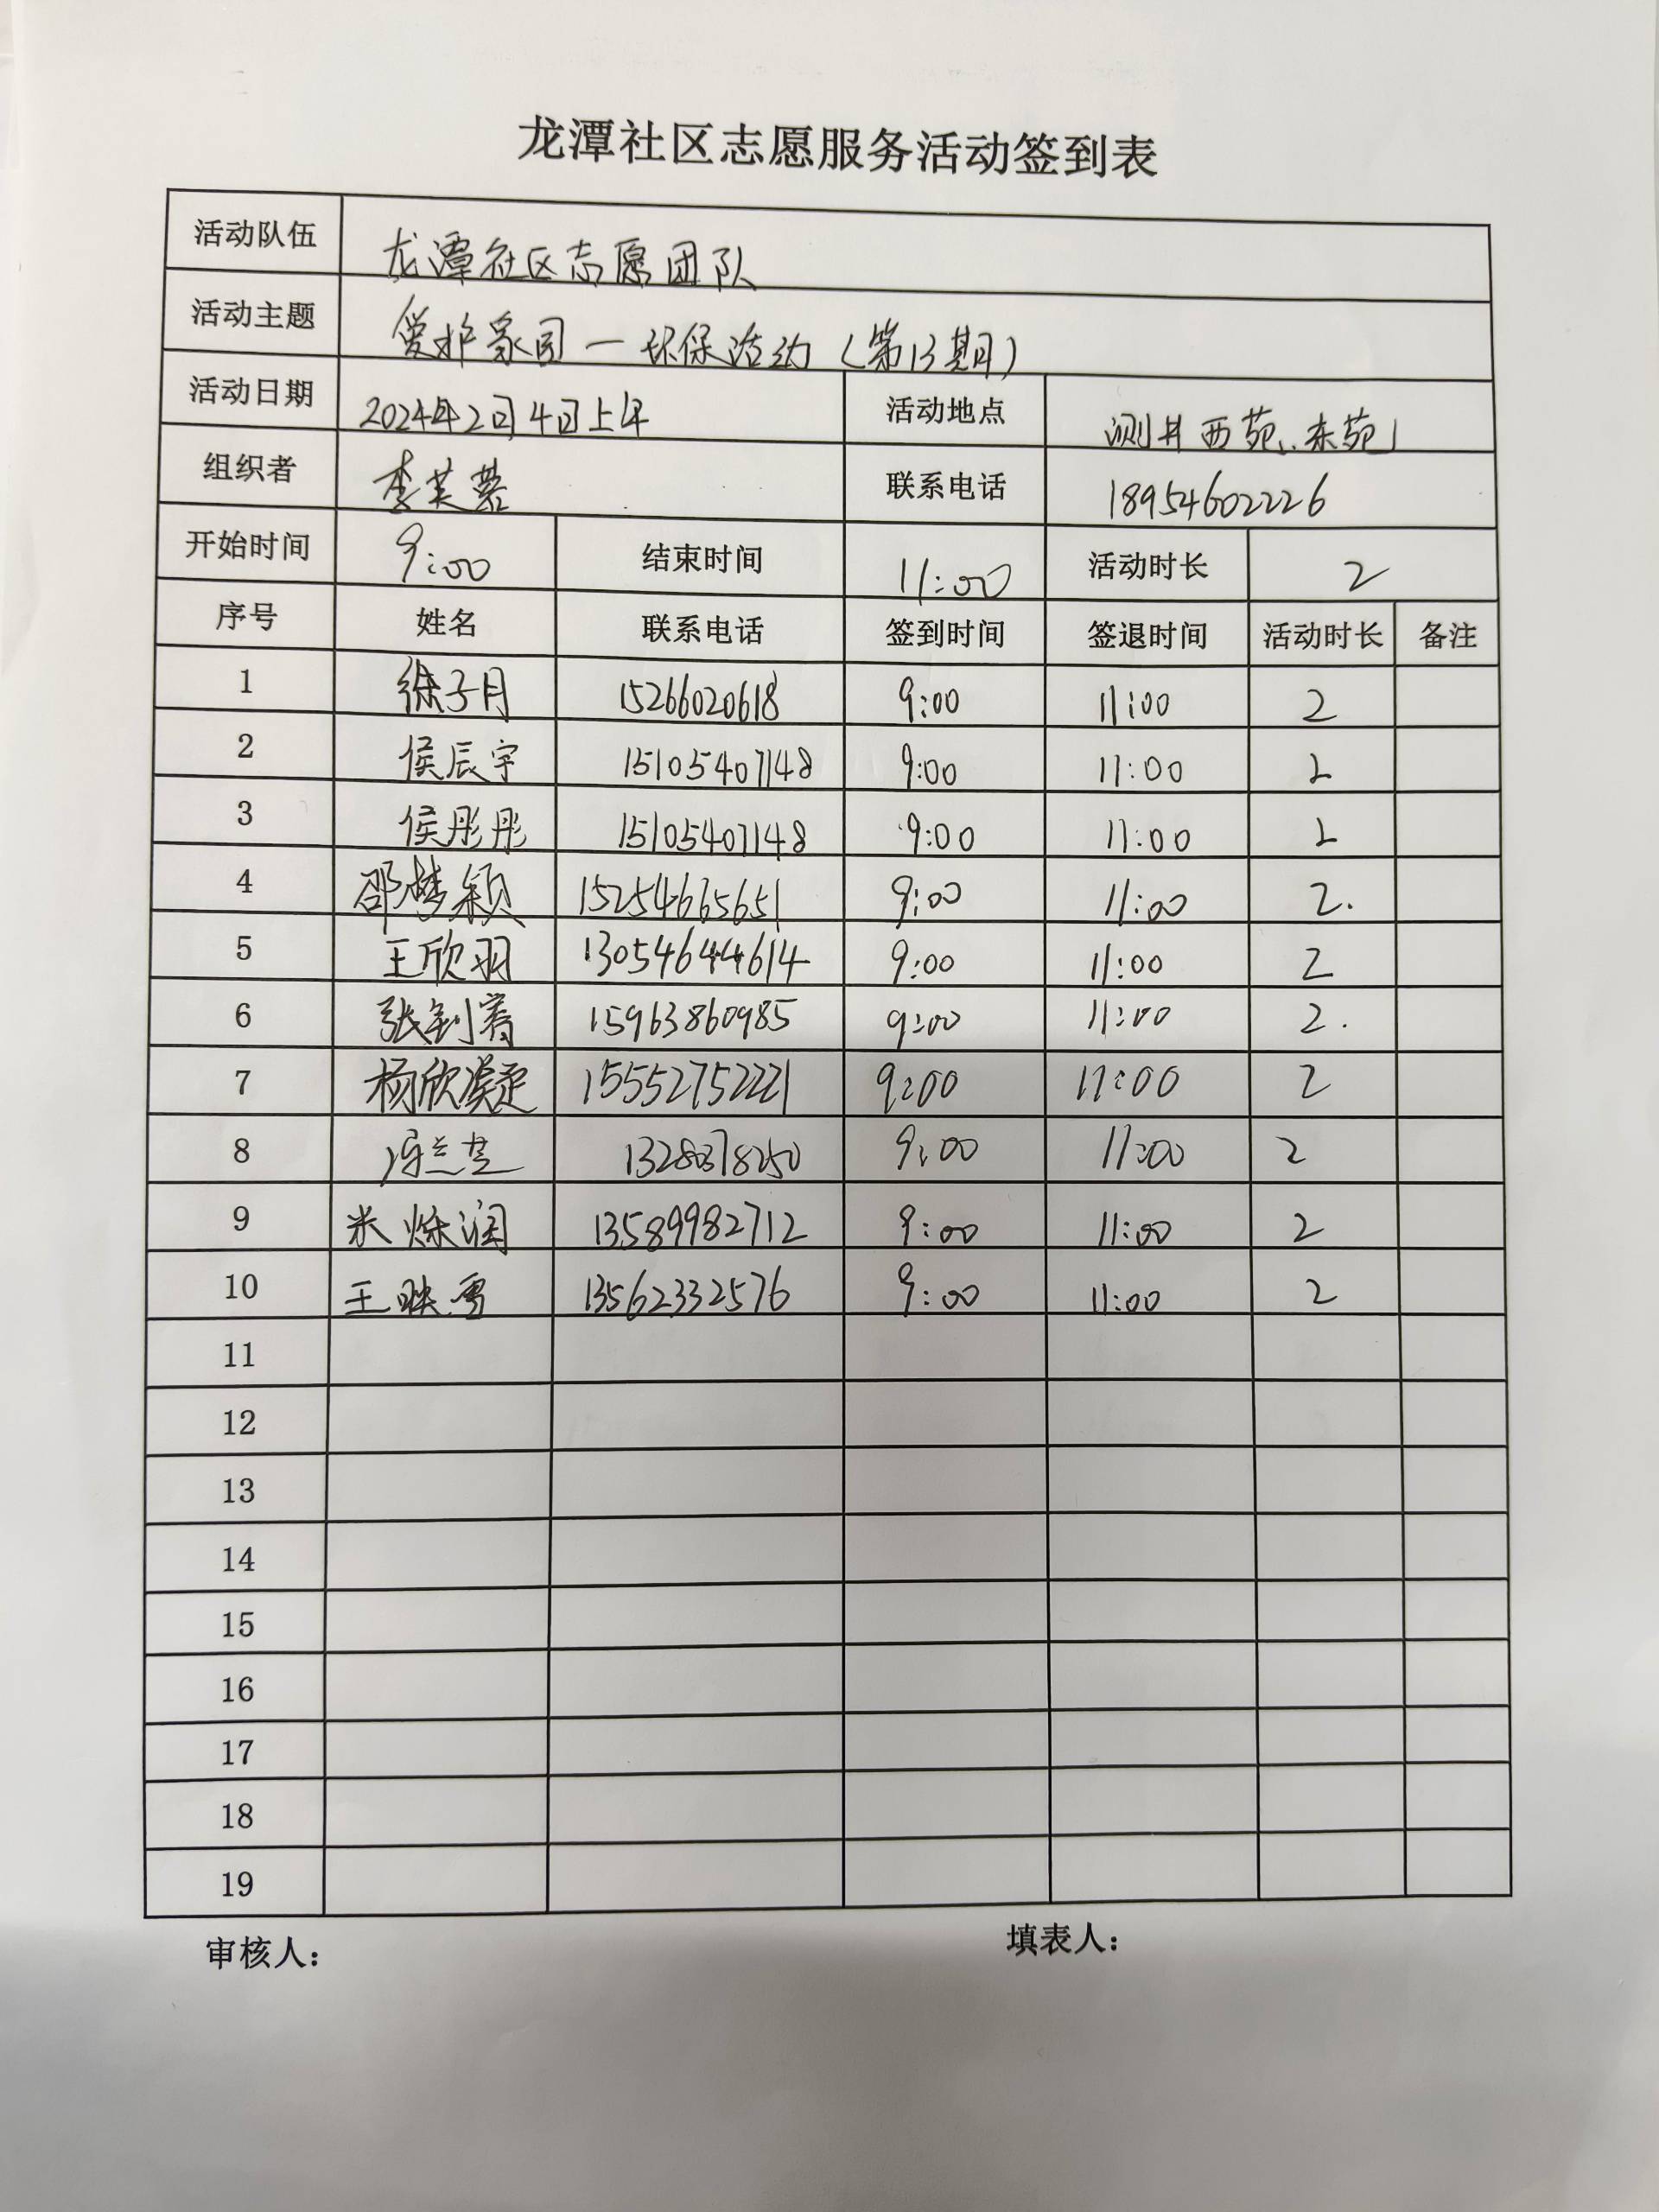 龙潭社区志愿服务活动签到表
活动队伍 龙潭社区志愿团队
活动主题 爱护家园一环保活动(第13期)
活动日期 2024年2月4日上午 活动地点 测井西苑、东苑
组织者 李芙蓉 联系电话 18954602226
开始时间 9:00 结束时间 11:00 活动时长 2
序号 姓名 联系电话 签到时间 签退时间 活动时长 备注
1 徐子月 15266020618 9:00 11:00 2
2 侯辰宇 15105407148 9:00 11:00 2
3 侯彤彤 15105407148 9:00 11:00 2
4 邵梦颖 15254665651 9:00 11:00 2.
5 王欣羽 13054644614 9:00 11:00 2
6 张钊 15963860985 9:00 11:00 2.
7 杨欣凝 15552752221 9:00 11:00 2
8 13280378250 9:00 11:00 2
9 米烁润 13589982712 9:00 11:00 2
10 王映雪 13562332576 9:00 11:00 2
11
12
13
14
15
16
17
18
19
审核人: 填表人: